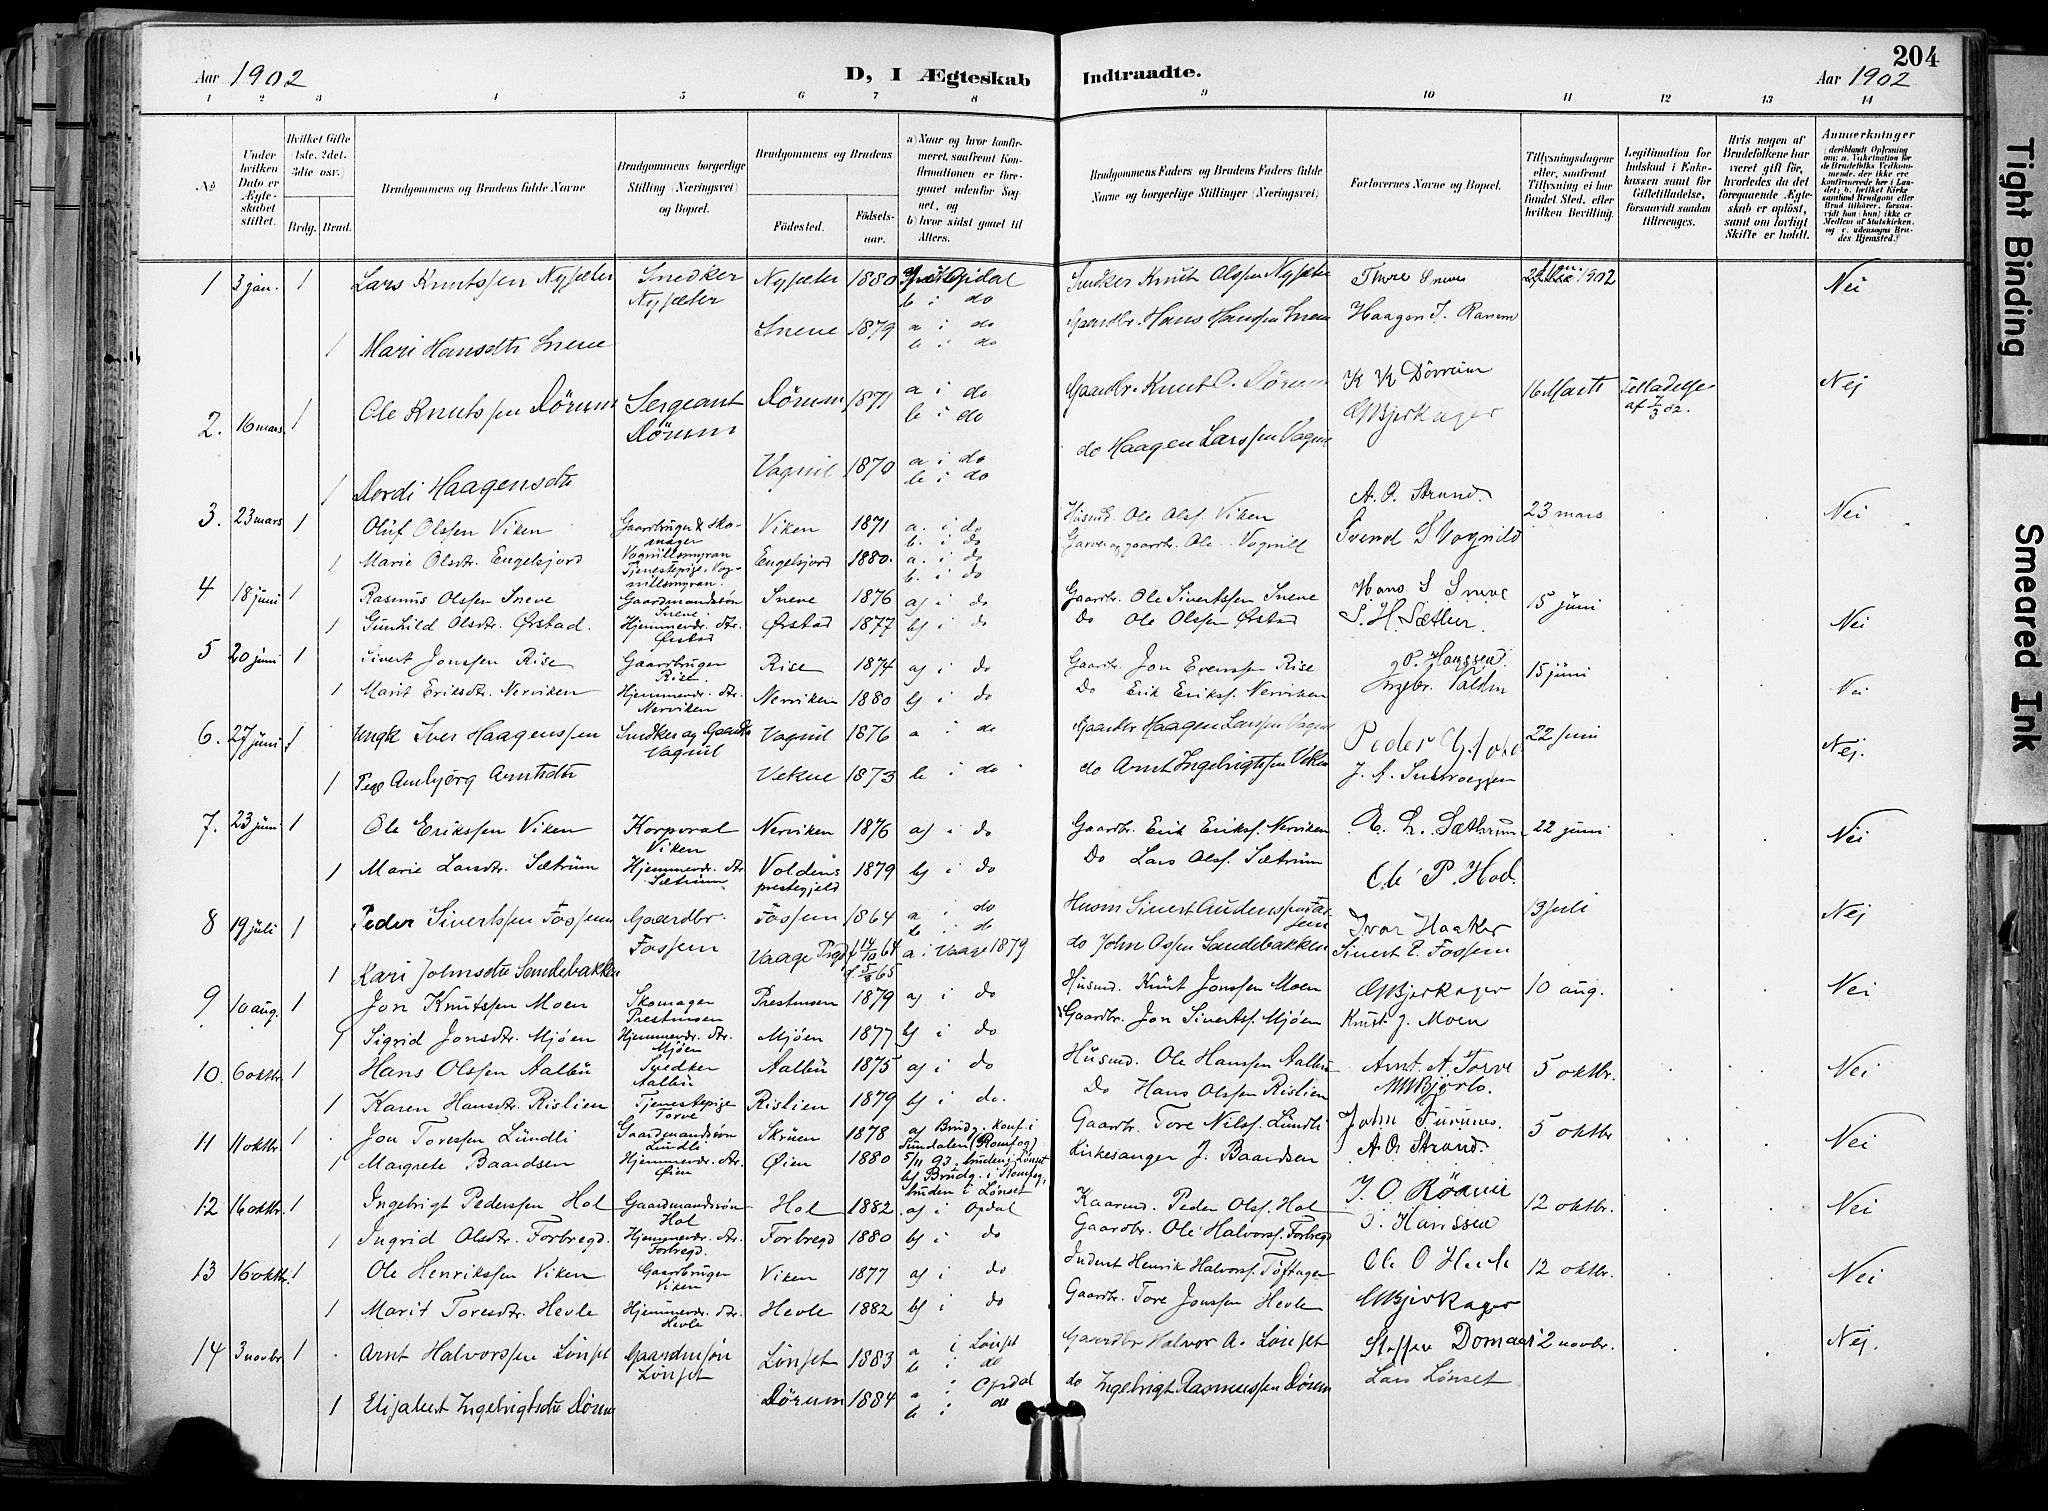 204
Aar 1902
D, I Ægteskab Indtraadte.
Aar 1902
1 2 3 4 5 6 7 8 9 10 11 12 13 14
No.
Under hvilken Dato er Ægteskabet stiftet.
Hvilket Gifte (1ste, 2det, 3die osv.)
Brdg. Brud.
Brudgommens og Brudens fulde Navne
Brudgommens borgerlige Stilling (Næringsvei) og Bopæl.
Brudgommens og Brudens
Fødested.
Fødselsaar.
a) Naar og hvor konfirmeret, saafremt Konfirmationen er foregaaet udenfor Sognet, og
b) hvor sidst gaaet til Alters.
Brudgommens Faders og Brudens Faders fulde Navne og borgerlige Stillinger (Næringsvei)
Forlovernes Navne og Bopæl.
Tillysningsdagene eller, saafremt Tillysning ei har fundet Sted, efter hvilken Bevilling.
Legitimation for Indskud i Enkekassen samt for Giftetilladelse, forsaavidt saadan tiltrænges.
Hvis nogen af Brudefolkene har været gift før, hvorledes da det foregaaende Ægteskab er opløst, samt om lovligt Skifte er holdt.
Anmerkninger
1 3 jan. 1 Lars Knutssen Nysæter Snedker Nysæter Nysæter 1880 Opdal b i do Snedker Knut Olssen Nysæter Thore Sneve 1902 Nei
1 Mari Hansdtr Sneve Sneve 1879 a i do b i do Gaardbr. Hans Hanssen Sneve Haagen J. Ranem
2. 16 mars 1 Ole Knutssen Dörum Sergeant Dörum Dörum 1871 a i do b i do Gaardbr. Knut O. Dörum K K Dörrum 16 Marts Tilladelse af 7/3 02. Nej
1 Dordi Haagensdtr Vagnil 1870 a i do b i do do Haagen Larssen Vagnil OBjerkager
3. 23 mars 1 Oluf Olssen Viken Gaardbruger & Skomager Vognillsmyran Viken 1871 a. i do b. i do Husmd. Ole Olsf. Viken A. O. Strand. 23 mars Nei
1 Marie Olsdtr. Engelsjord Tjenestepige, Vognillsmyran. Engelsjord 1880. a. i do b. i do Garver og gaardbr. Ole Vognill Svend S Vognild
4 18 juni 1 Rasmus Olssen Sneve Gaardmandssøn Sneve. Sneve 1876 a) i do Gaardbr. Ole Sivertssen Sneve Hans S Sneve 15 juni Nei
1 Gunhild Olsdtr. Ørstad. Hjemmevær. dtr. Ørstad Ørstad 1877 b) i do Do Ole Olssen Ørstad S. H. Sæther.
5 20 juni 1 Sivert Jonssen Rise Gaardbruger Rise. Rise 1874 a) i do Gaardbr. Jon Evenssen Rise P. Hanssen. 15 juni Nei
1 Marit Eriksdtr. Nerviken Hjemmevær. dtr. Nerviken Nerviken 1880 b) i do Do Erik Eriksf. Nerviken Ingebr. Valdm
6. 27 juni 1 Ungk Iver Haagenssen Snedker og Gaardbr Vagnil Vagnil 1876 a i do Gaardbr Haagen Larssen Vagnil Peder 22 Juni Nej.
1 Pige Ambjørg Arntsdtr Vekve 1873 b i do do Arnt Ingebrigtssen J. A.
7. 23 juni 1 Ole Erikssen Viken Korporal Viken Nerviken 1876 a) i do Gaardbr. Erik Eriksf. Nerviken E. L. Sæthrum 22 juni Nei
1 Marie Larsdtr. Sætrum Hjemmevær. dtr. Sætrum Voldens prestegjeld 1879 b) i do Do Lars Olsf. Sætrum Ole P. Hol.
8 19 juli 1 Peder Sivertssen Fossem Gaardbr. Fossem Fossem 1864 a i do b i do Husm Sivert Audenssen Fossem Ivar Haaker 13 Juli Nej
1 Kari Johnsdtr Sandebakken Vaage Prgd f 14/10 64 f 5/3 65 a i Vaage 1879 do John Ossen Sandebakken Sivert P. Fossem
9 10 aug. 1 Jon Knutssen Moen Skomager Prestmoen Prestmoen 1879 a) i do Husmd. Knut Jonssen Moen OBjerkager 10 aug. Nei
1 Sigrid Jonsdtr. Mjöen Hjemmevær. dtr. Mjöen Mjöen 1877 b) i do Gaardbr. Jon Sivertsf. Mjöen Knut J. Moen
10. 6 oktbr. 1 Hans Olssen Aalbu Snedker Aalbu Aalbu 1875 a) i do Husmd. Ole Hanssen Aalbu Arnt A Torve 5 oktbr. Nei
1 Karen Hansdtr. Rislien Tjenestepige Torve Rislien 1879 b) i do. Do Hans Olssen Rislien
11 11 oktbr. 1 Jon Toressen Lündli Gaardmandssøn Lündli Skruen 1878 a) Brudg. konf. i Sundalen (Romfog) 5/11 93, bruden i Lønset Gaardbr. Tore Nilsf. Lündli John Furunes. 5 oktbr Nei
1 Margrete Baardsen Hjemmevær. dtr. Øien Øien 1880 b) Brudg. i Romfog, bruden i Lønset Kirkesanger J. Baardsen A. O. Strand.
12 16 oktbr. 1 Ingebrigt Pederssen Hol Gaardmandssøn Hol Hol 1882 a) i Opdal Kaarmd. Peder Olsf. Hol 12 oktbr. Nei
1 Ingrid Olsdtr. Forbregd. Hjemmevær. dtr. Forbregd. Forbregd 1880 b) i do Gaardbr. Ole Halvorsf. Forbregd Hanssen
13 16 oktbr. 1 Ole Henrikssen Viken Gaardbruger Viken Viken 1877 a) i do Henrik Halvorsf. Toftager Ole O Hevle 12 oktbr. Nei
1 Marit Toresdtr. Hevle Hjemmevær. dtr. Hevle Hevle 1882 b) i do Gaardbr. Tore Jonssen Hevle OBjerkager
14 3 novbr. 1 Arnt Halvorssen Lønset Gaardmsøn Lønset Lønset 1883 a i Lønset b i do Gaardbr Halvor A. Lønset Steffen Domaas 2 novbr. Nej.
1 Elisabert Ingebrigtsdtr Dörum Dörum 1884 a i Opdal b i do do Ingebrigt Rasmussen Dörum Lars Lönset
Tight Binding
Smeared Ink